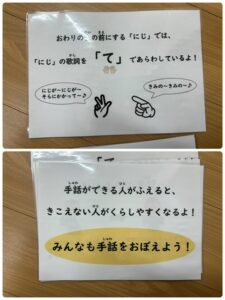 おわりの　の前にする「にじ」では、
「にじ」の歌詞を「て」であらわしているよ！
にじが〜にじが〜
そらにかかって〜♪
きみの〜きみの〜♪
手話ができる人がふえると、
きこえない人がくらしやすくなるよ！
みんなも手話をおぼえよう！